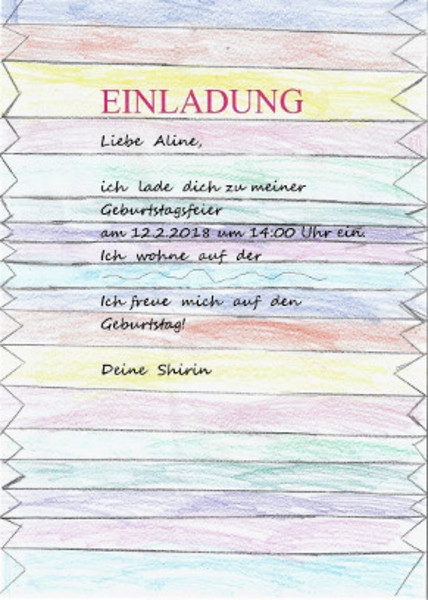 EINLADUNG
Liebe Aline,
ich lade dich zu meiner
Geburtstagsfeier
am 12.2.2018 um 14:00 Uhr ein.
Ich wohne auf der
Ich freue mich auf den
Geburtstag!
Deine Shirin